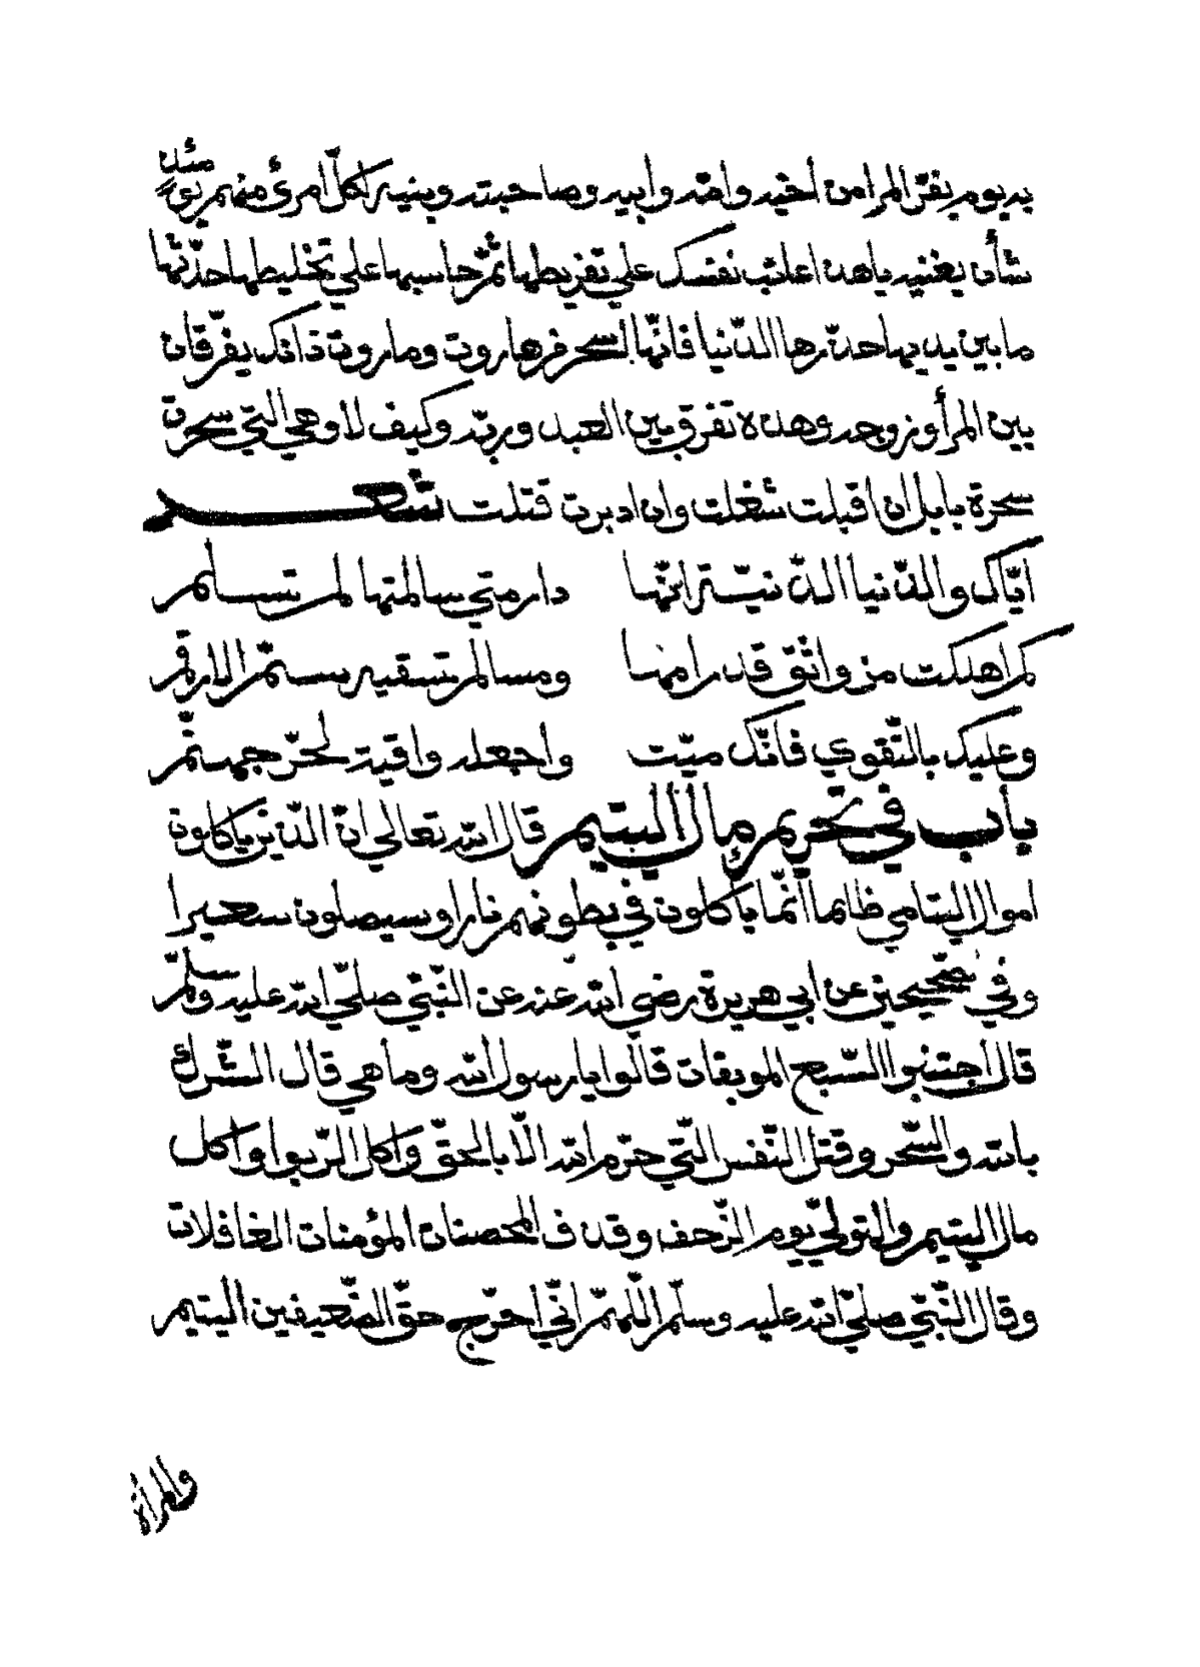 يديه يوم يفرّ المرأ من أخيه وامّه وابيه وصاحبته وبنيه لكلّ امرئ منهم يومئذ
شأن يغنيه ياهذا عاتب نفسك على تفريطها ثمّ حاسبها علي تخليطها حدّثها
ما بين يديها حذّرها الدّنيا فانّها اسحر من هاروت وماروت ذانك يفرّقان
بين المرأ وزوجه وهذه تفرق بين العبد وربّه وكيف لا وهي التي سحرة
سحرة بابل ان أقبلت شغلت وان ادبرت قتلت شعر
ايّاك والدّنيا الدّنيّة انّها دار متي سالمتها لم تسلم
كم اهلكت من واثق قد رامها ومسالم تسقيه سمّ الارقم
وعليك بالتّقوي فانّك ميّت واجعله واقية لحرّ جهنّم
باب في تحريم مال اليتيم قال الله تعالي انّ الّذين ياكلون
اموال اليتامي ظالما أنّما يأكلون في بطونهم نارا وسيصلون سعيرا
وفي صّحيحين عن ابي هريرة رضي الله عنه عن النّبيّ صلّي الله عليه وسلّم
قال أجتنبوا السّبع الموبقات قالوا يا رسول الله وما هي قال الشّرك
بالله والسّحر وقتل النّفس الّتي حرّم الله الّا بالحقّ واكل الرّبوا واكل
مال اليتيم والتولّي يوم الزّحف وقذف المحصنات المؤمنات الغافلات
وقال النّبيّ صلّي الله عليه وسلّم اللّهمّ انّي أحرّج حقّ الضّعيفين اليتيم
والمرأة